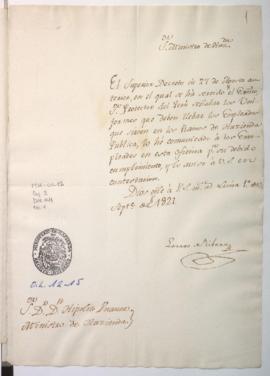 S. Ministro de Haz.da
El Supremo Decreto de 27 de Agosto an-
terior, en el qual se ha servido el Exmo.
S. Protector del Perú señalar los Uni-
formes que deben llebar los Empleados
que sirven en los Ramos de Hacienda
Publica, lo he comunicado à los Em-
pleados en esta oficina p.a su debido
cumplimiento, y lo aviso à V.S. en
contestacion.
Dios gūe à V.S. m.s a.s Lima 1.o de
Sept.e de 1821
O.L. 12-15
S. D. D. Hipolito Unanue
Ministro de Hacienda